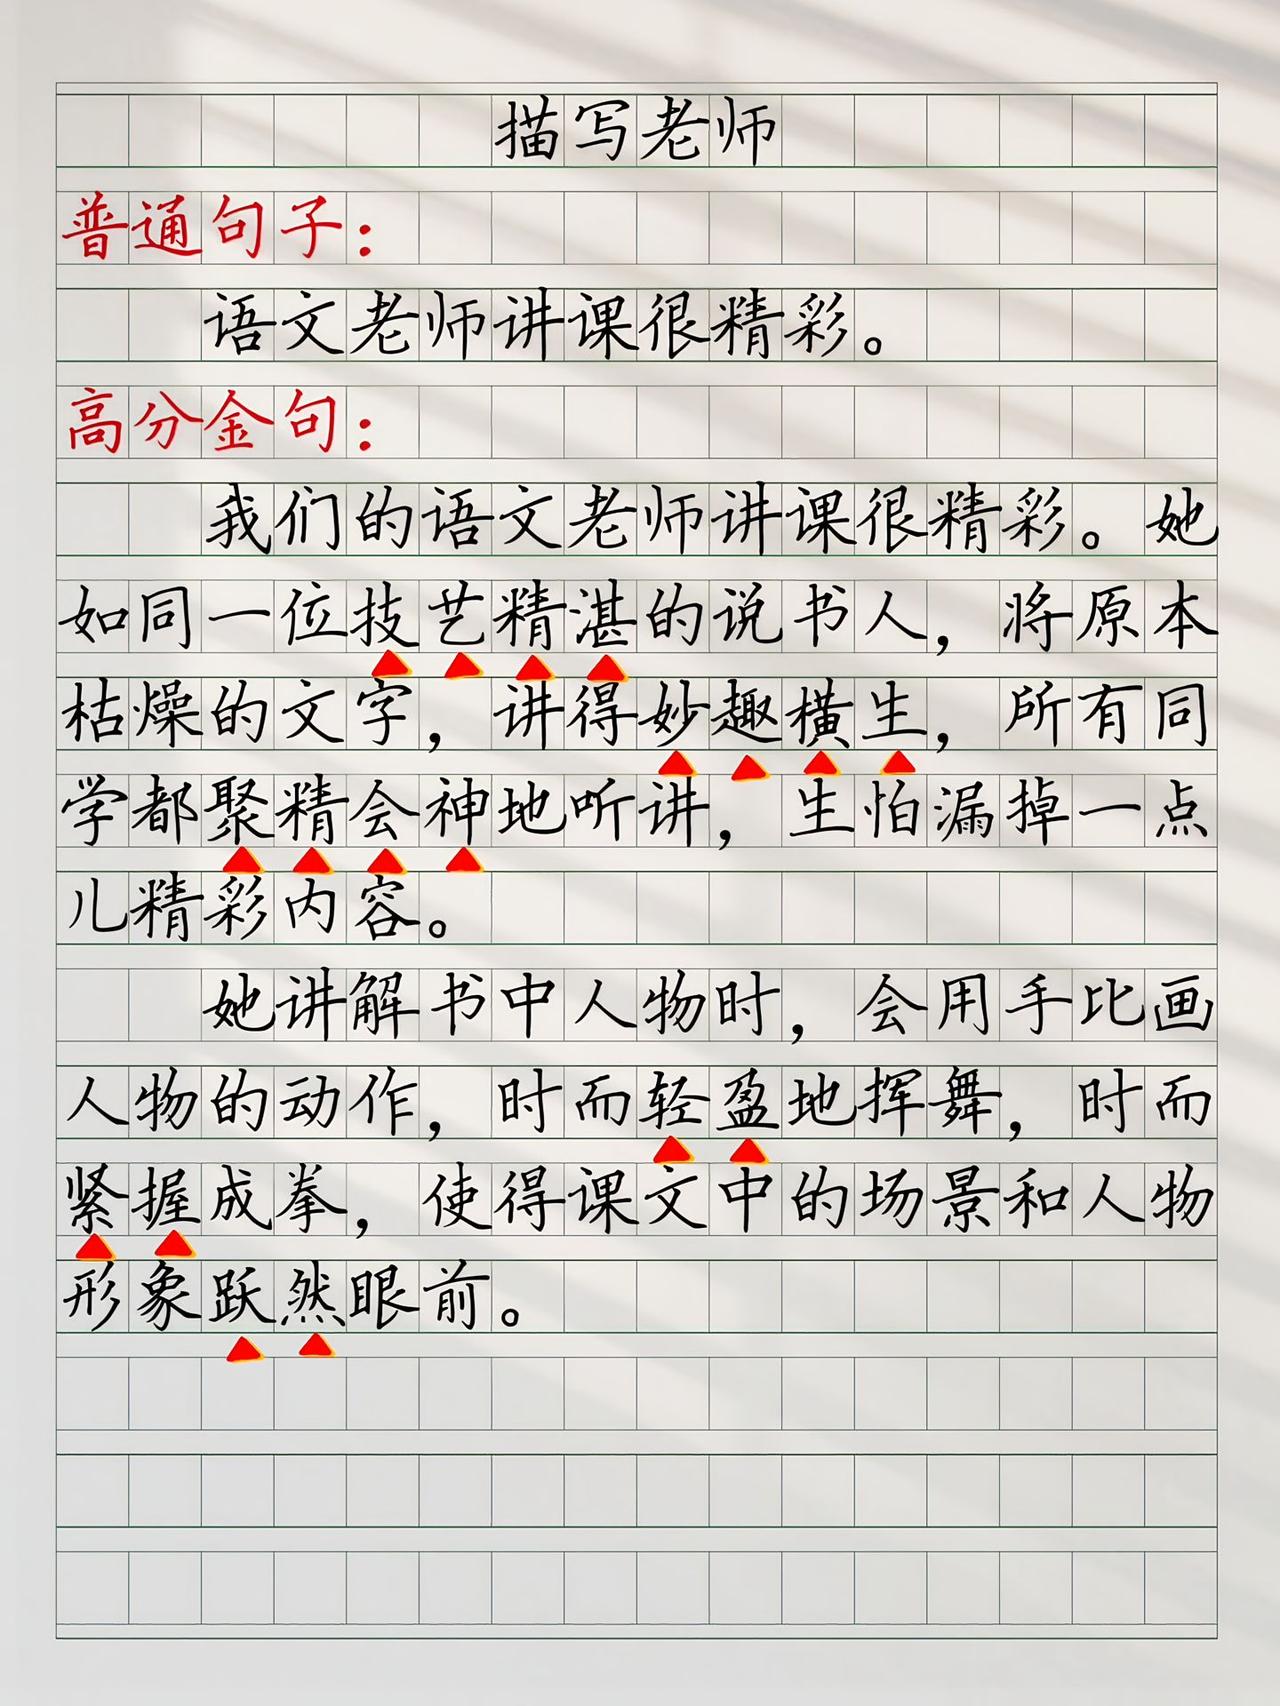 描写老师
普通句子：
语文老师讲课很精彩。
高分金句：
我们的语文老师讲课很精彩。她
如同一位技艺精湛的说书人，将原本
枯燥的文字，讲得妙趣横生，所有同
学都聚精会神地听讲，生怕漏掉一点
儿精彩内容。
她讲解书中人物时，会用手比画
人物的动作，时而轻盈地挥舞，时而
紧握成拳，使得课文中的场景和人物
形象跃然眼前。